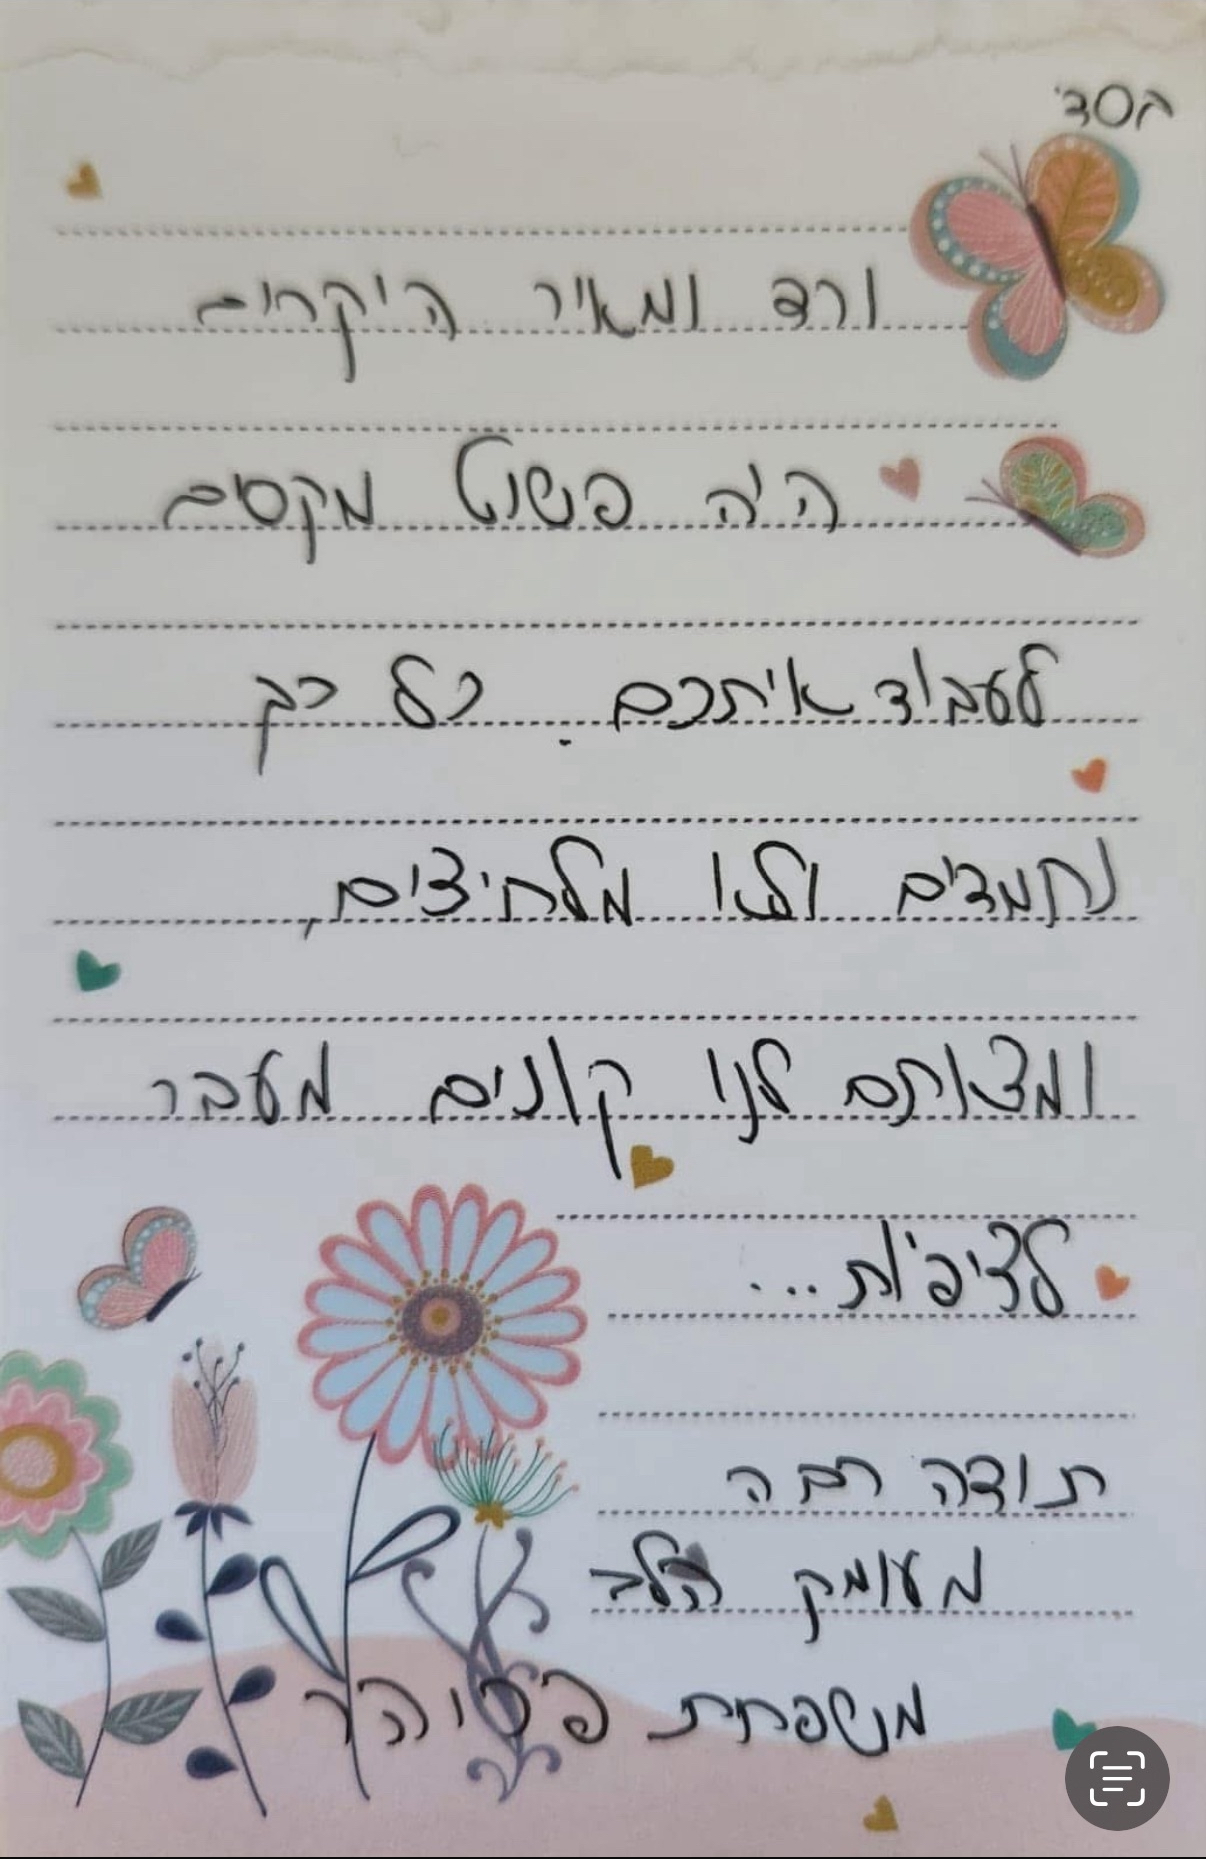 בסד'
ורד ומאיר היקרים
היה פשוט מקסים
לעבוד איתכם. כל כך
נחמדים ולא מלחיצים,
ומצאתם לנו קונים מעבר
לציפיות...
תודה רבה
מעומק הלב
משפחת